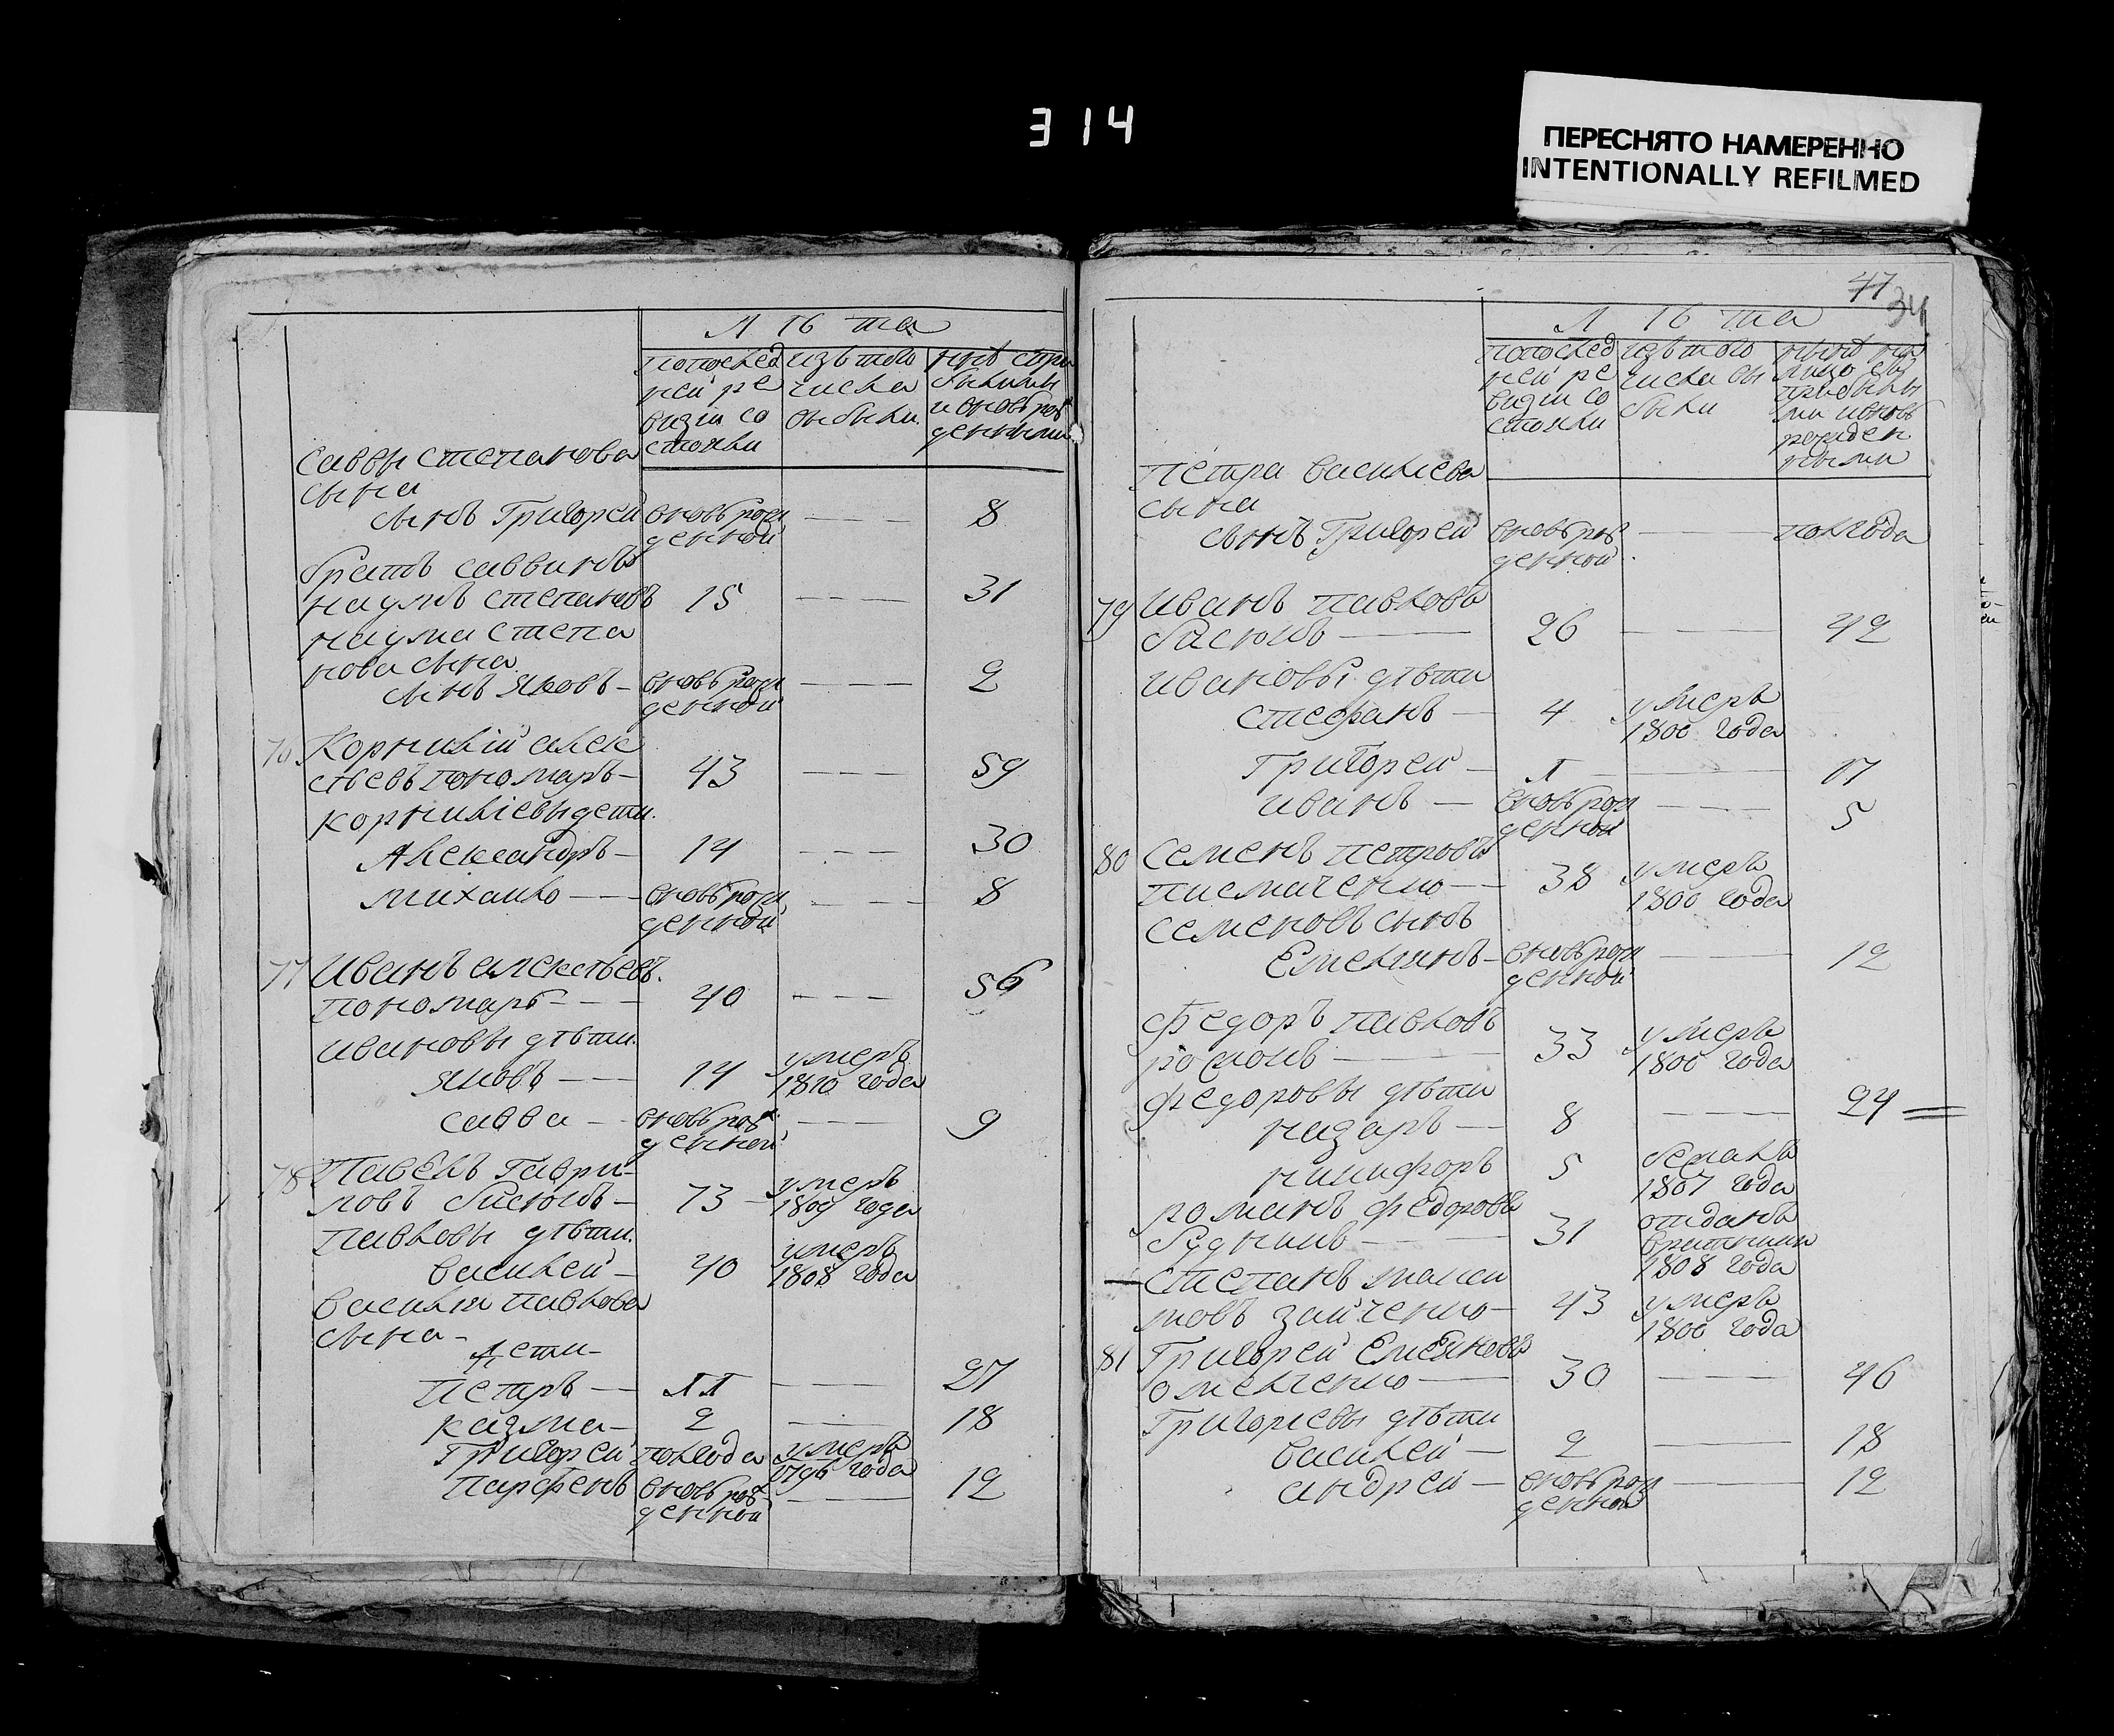 314
ПЕРЕСНЯТО НАМЕРЕННО
INTENTIONALLY REFILMED
Лѣта
попослед изътого
ней ре числа
визіи со выбыли
стояли
Саввы Степанова
сына
сынъ Григорей вновь рож — — — 8
денной
братъ Саввинъ
наумъ степановъ 15 — — — 31
наума степа
нова сына
сынъ яковъ — вновь рож — — — 2
денной
76 Корнилій алек
сѣевъ пономарь — 43 — — — 59
корниліевы дети
Александръ — 14 — — — 30
михайло — — вновь рож — — — 8
денной
77 Иванъ алексѣевъ
пономарь — — — 40 — — — 56
ивановы дѣти
яковъ — — 14 умеръ
1810 года
савва — вновь рож — — — 9
денной
78 Павелъ Гаври-
ловъ — 73 умеръ
1809 года
павловы дѣти
василей — 40 умеръ
1808 года
василья павлова
сына —
дети —
петръ — 11 — — 27
казма — 2 — 18
Григорей полгода умеръ
года
парфенъ вновь рож — — 12
денной
47
34
Лѣта
попослед изътого ныне на
ней ре числа вы лицо съ
визіи со были прибылы
стояли ми ивновь
рожден
ными
петра васильева
сына
сынъ Григорей вновь рож — — полгода
денной
79 Иванъ павловъ
— 26 — — — 42
ивановы дѣти
стефанъ — 4 умеръ
1800 года
Григорей — 1 — — 17
иванъ — вновь рож — — — 5
денной
80 Семенъ петровъ
писмаченко — 38 умеръ
1800 года
семеновъ сынъ
Емельянъ — вновь рож — — — 12
денной
федоръ павловъ
33 умеръ
1800 года
федоровы дѣти
назаръ — 8 — — — 24
никифоръ 5 бежалъ
1807 года
романъ федоровъ
31 отданъ
1808 года
степанъ
зайченко — 43 умеръ
1800 года
81 Григорей Емельяновъ
омелченко — 30 — — — 46
Григорьевы дѣти
василей — 2 — 18
андрей — вновь рож — 12
денной